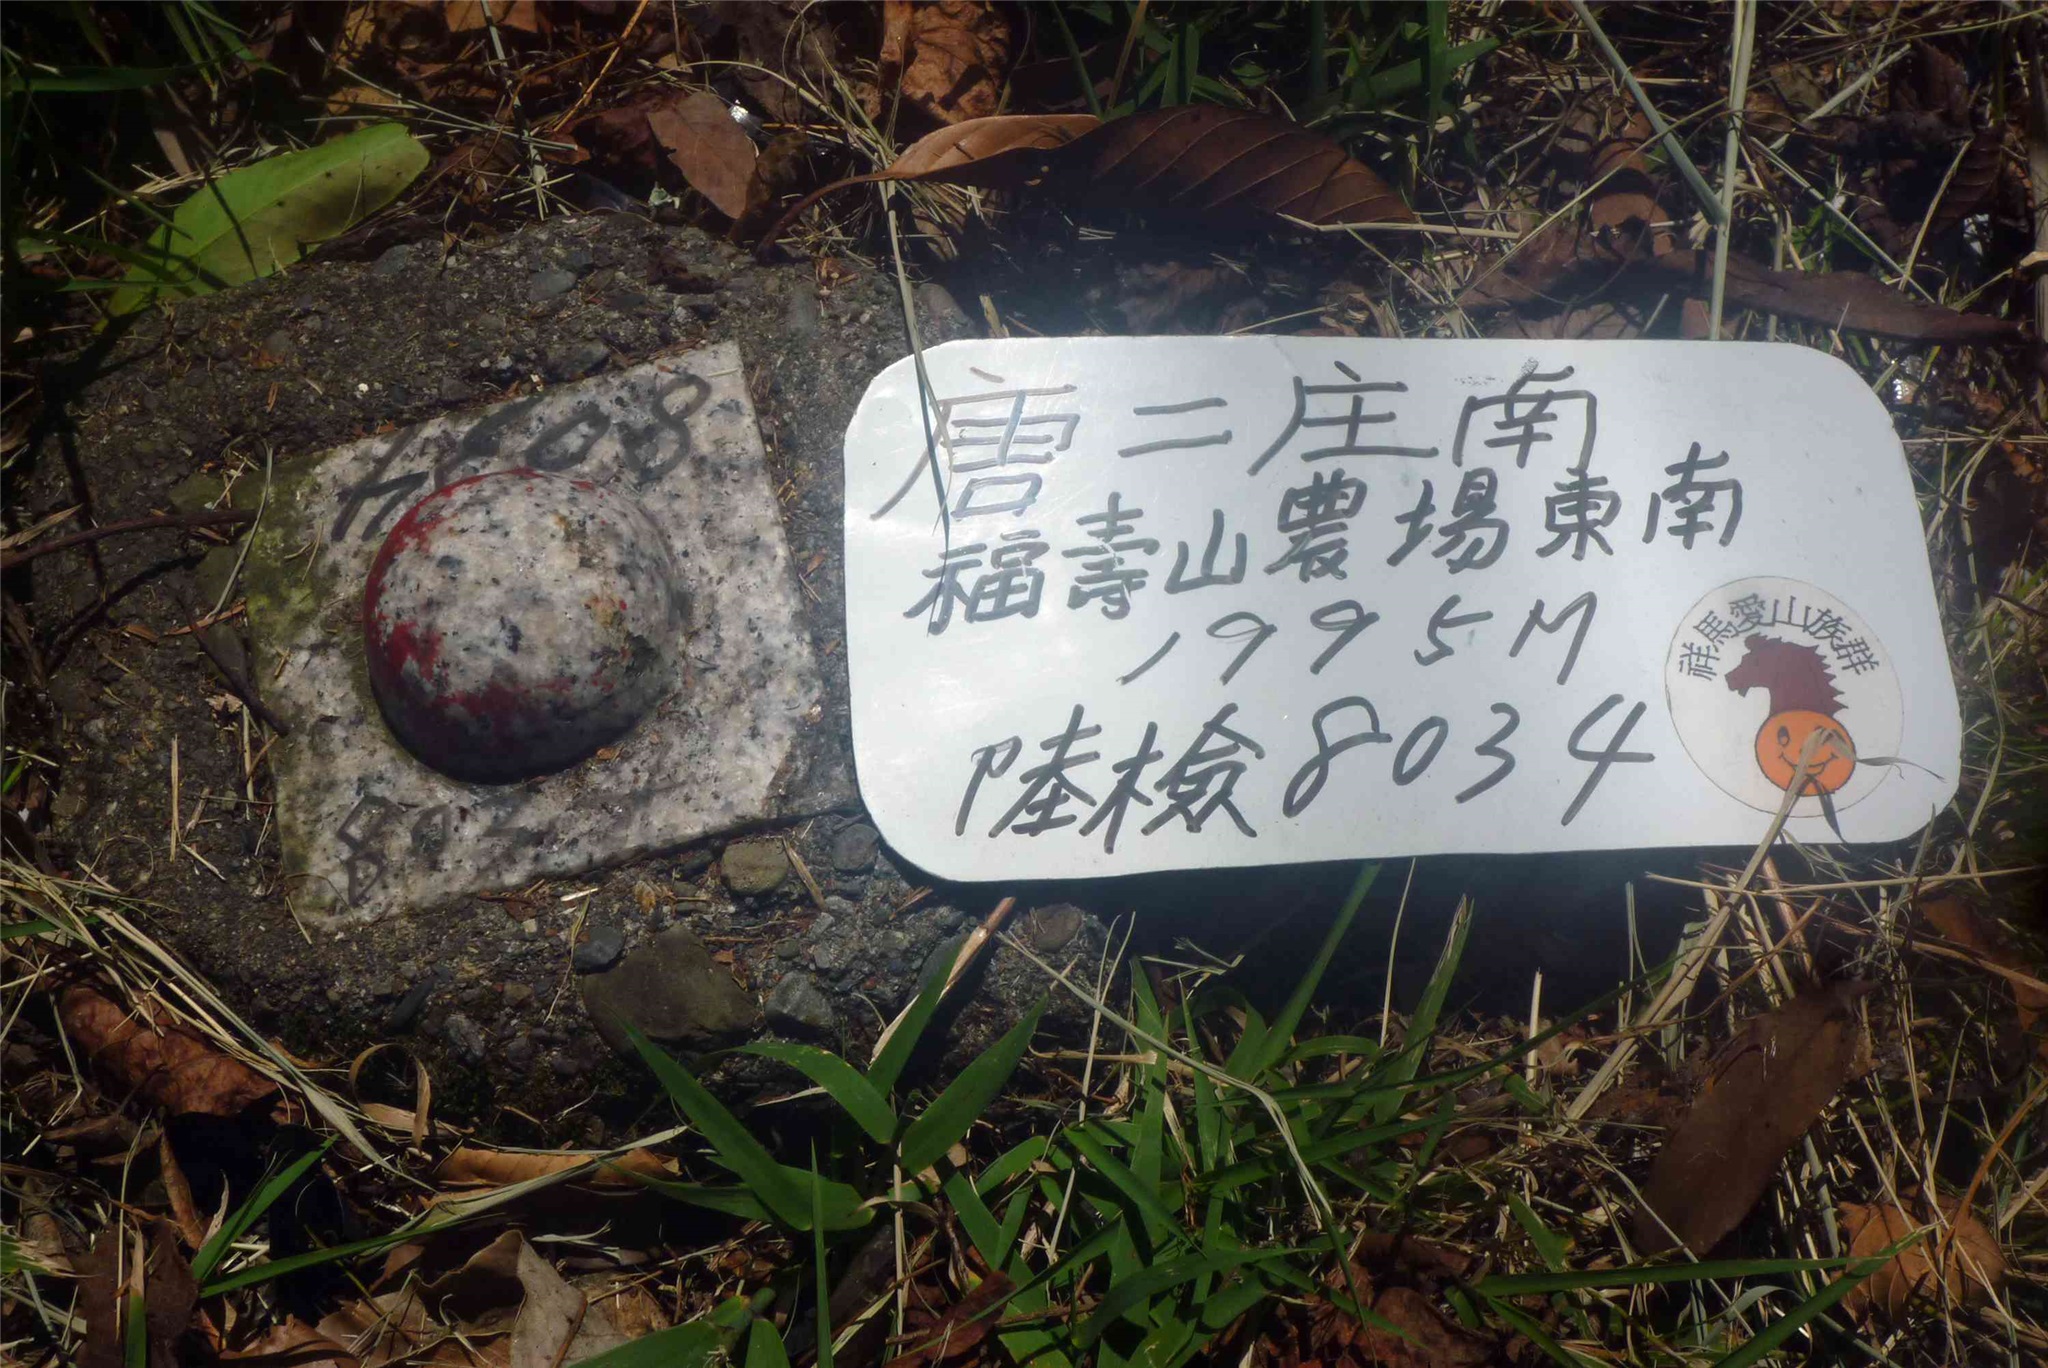 H608
803
唐二庄南
福壽山農場東南
1995M
陸檢8034
祥馬愛山族群